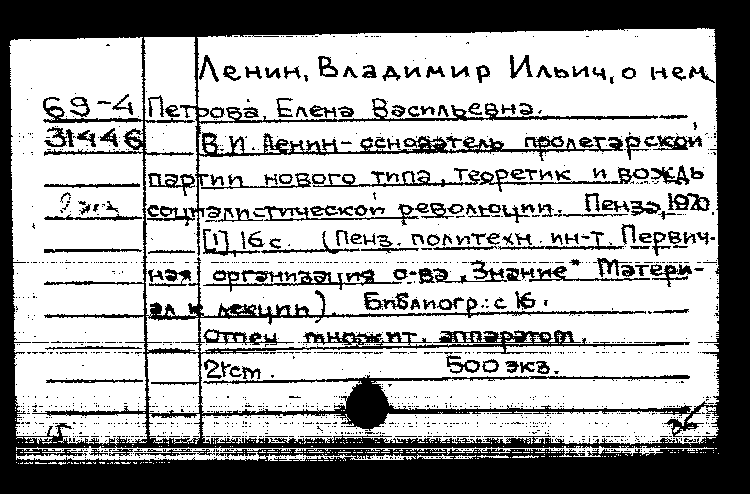 Ленин, Владимир Ильич, о нем
69-4 Петрова, Елена Васильевна.
31446 В.И. Ленин - основатель пролетарской
партии нового типа, теоретик и вождь
2 экз социалистической революции. Пенза, 1970.
[1], 16 с. (Пенз. политехн. ин-т. Первич-
ная организация о-ва "Знание" Матери-
ал к лекции). Библиогр.: с 16.
Отпеч множит. аппаратом.
500 экз.
15